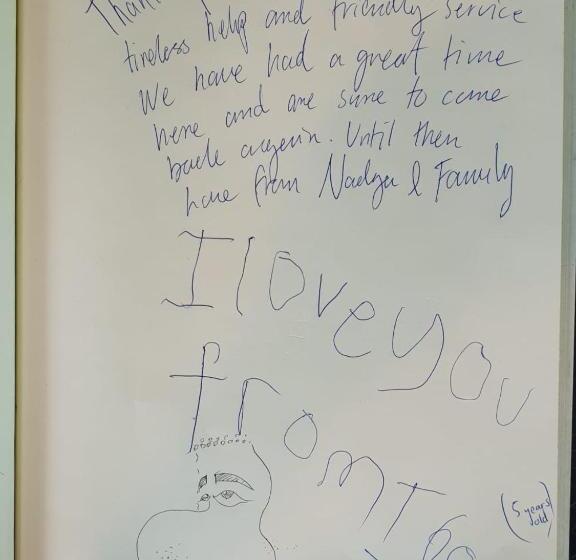 tireless help and friendly service
We have had a great time
here and are sure to come
back again. Until then
love from & Family
I love you
from
(5 years
old)